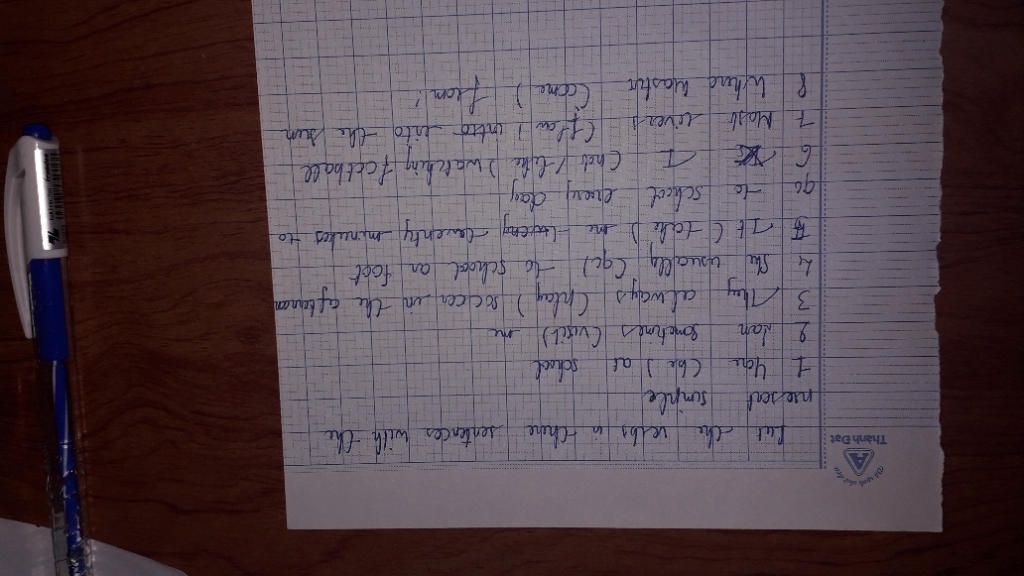 Thành Đạt
Put the verbs in there sentences with the
present simple
1 You (be) at school
2 Lan sometimes (visit) me
3 They always (play) soccer in the afternoon
4 She usually (go) to school on foot
5 It (take) me twenty minutes to
go to school every day
6 I (not / like) watching football
7 Most rivers into the
8 Where (come) from